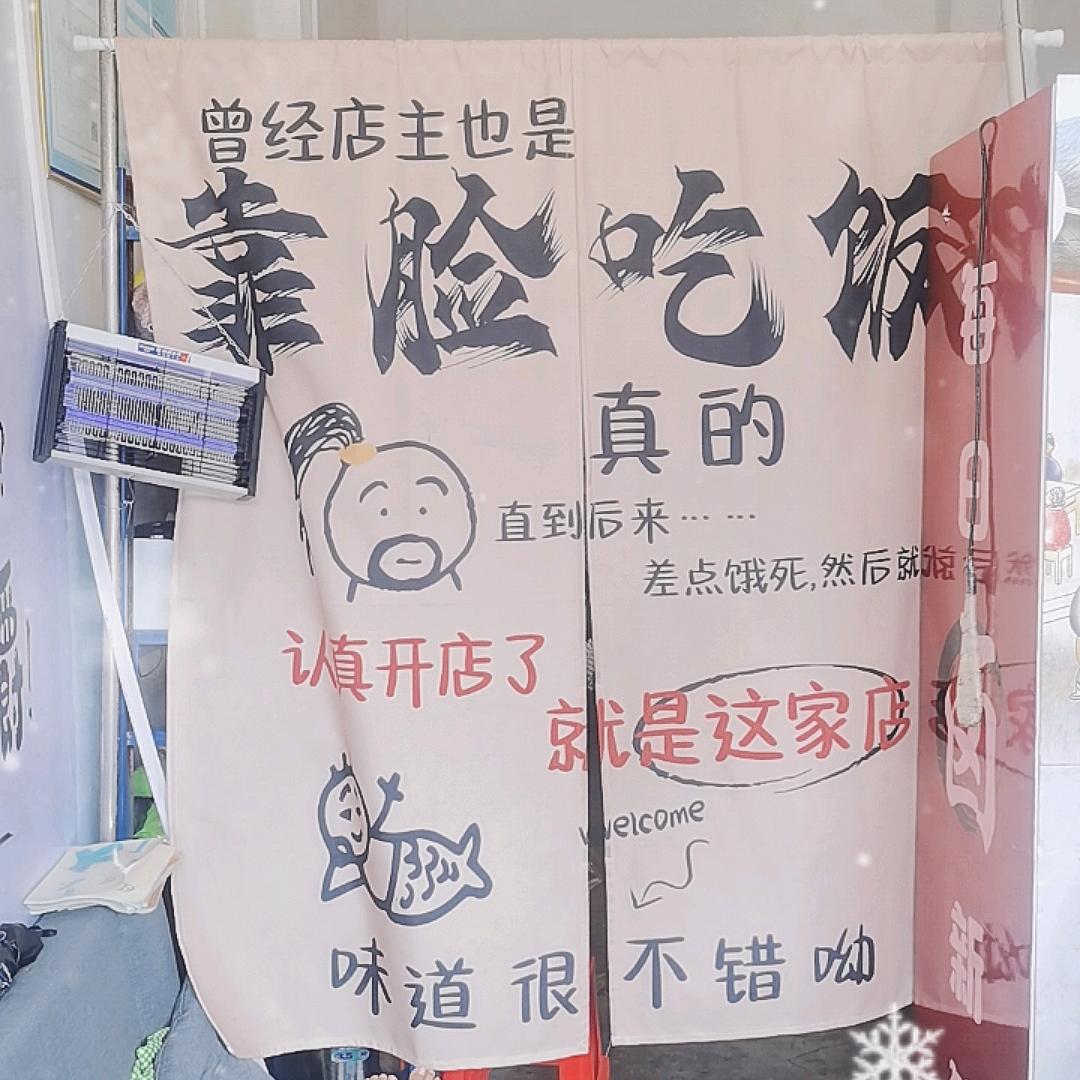 曾经店主也是
靠脸吃饭
真的
直到后来……
差点饿死,然后就
认真开店了
就是这家店
welcome
味道很不错呦
每日
新